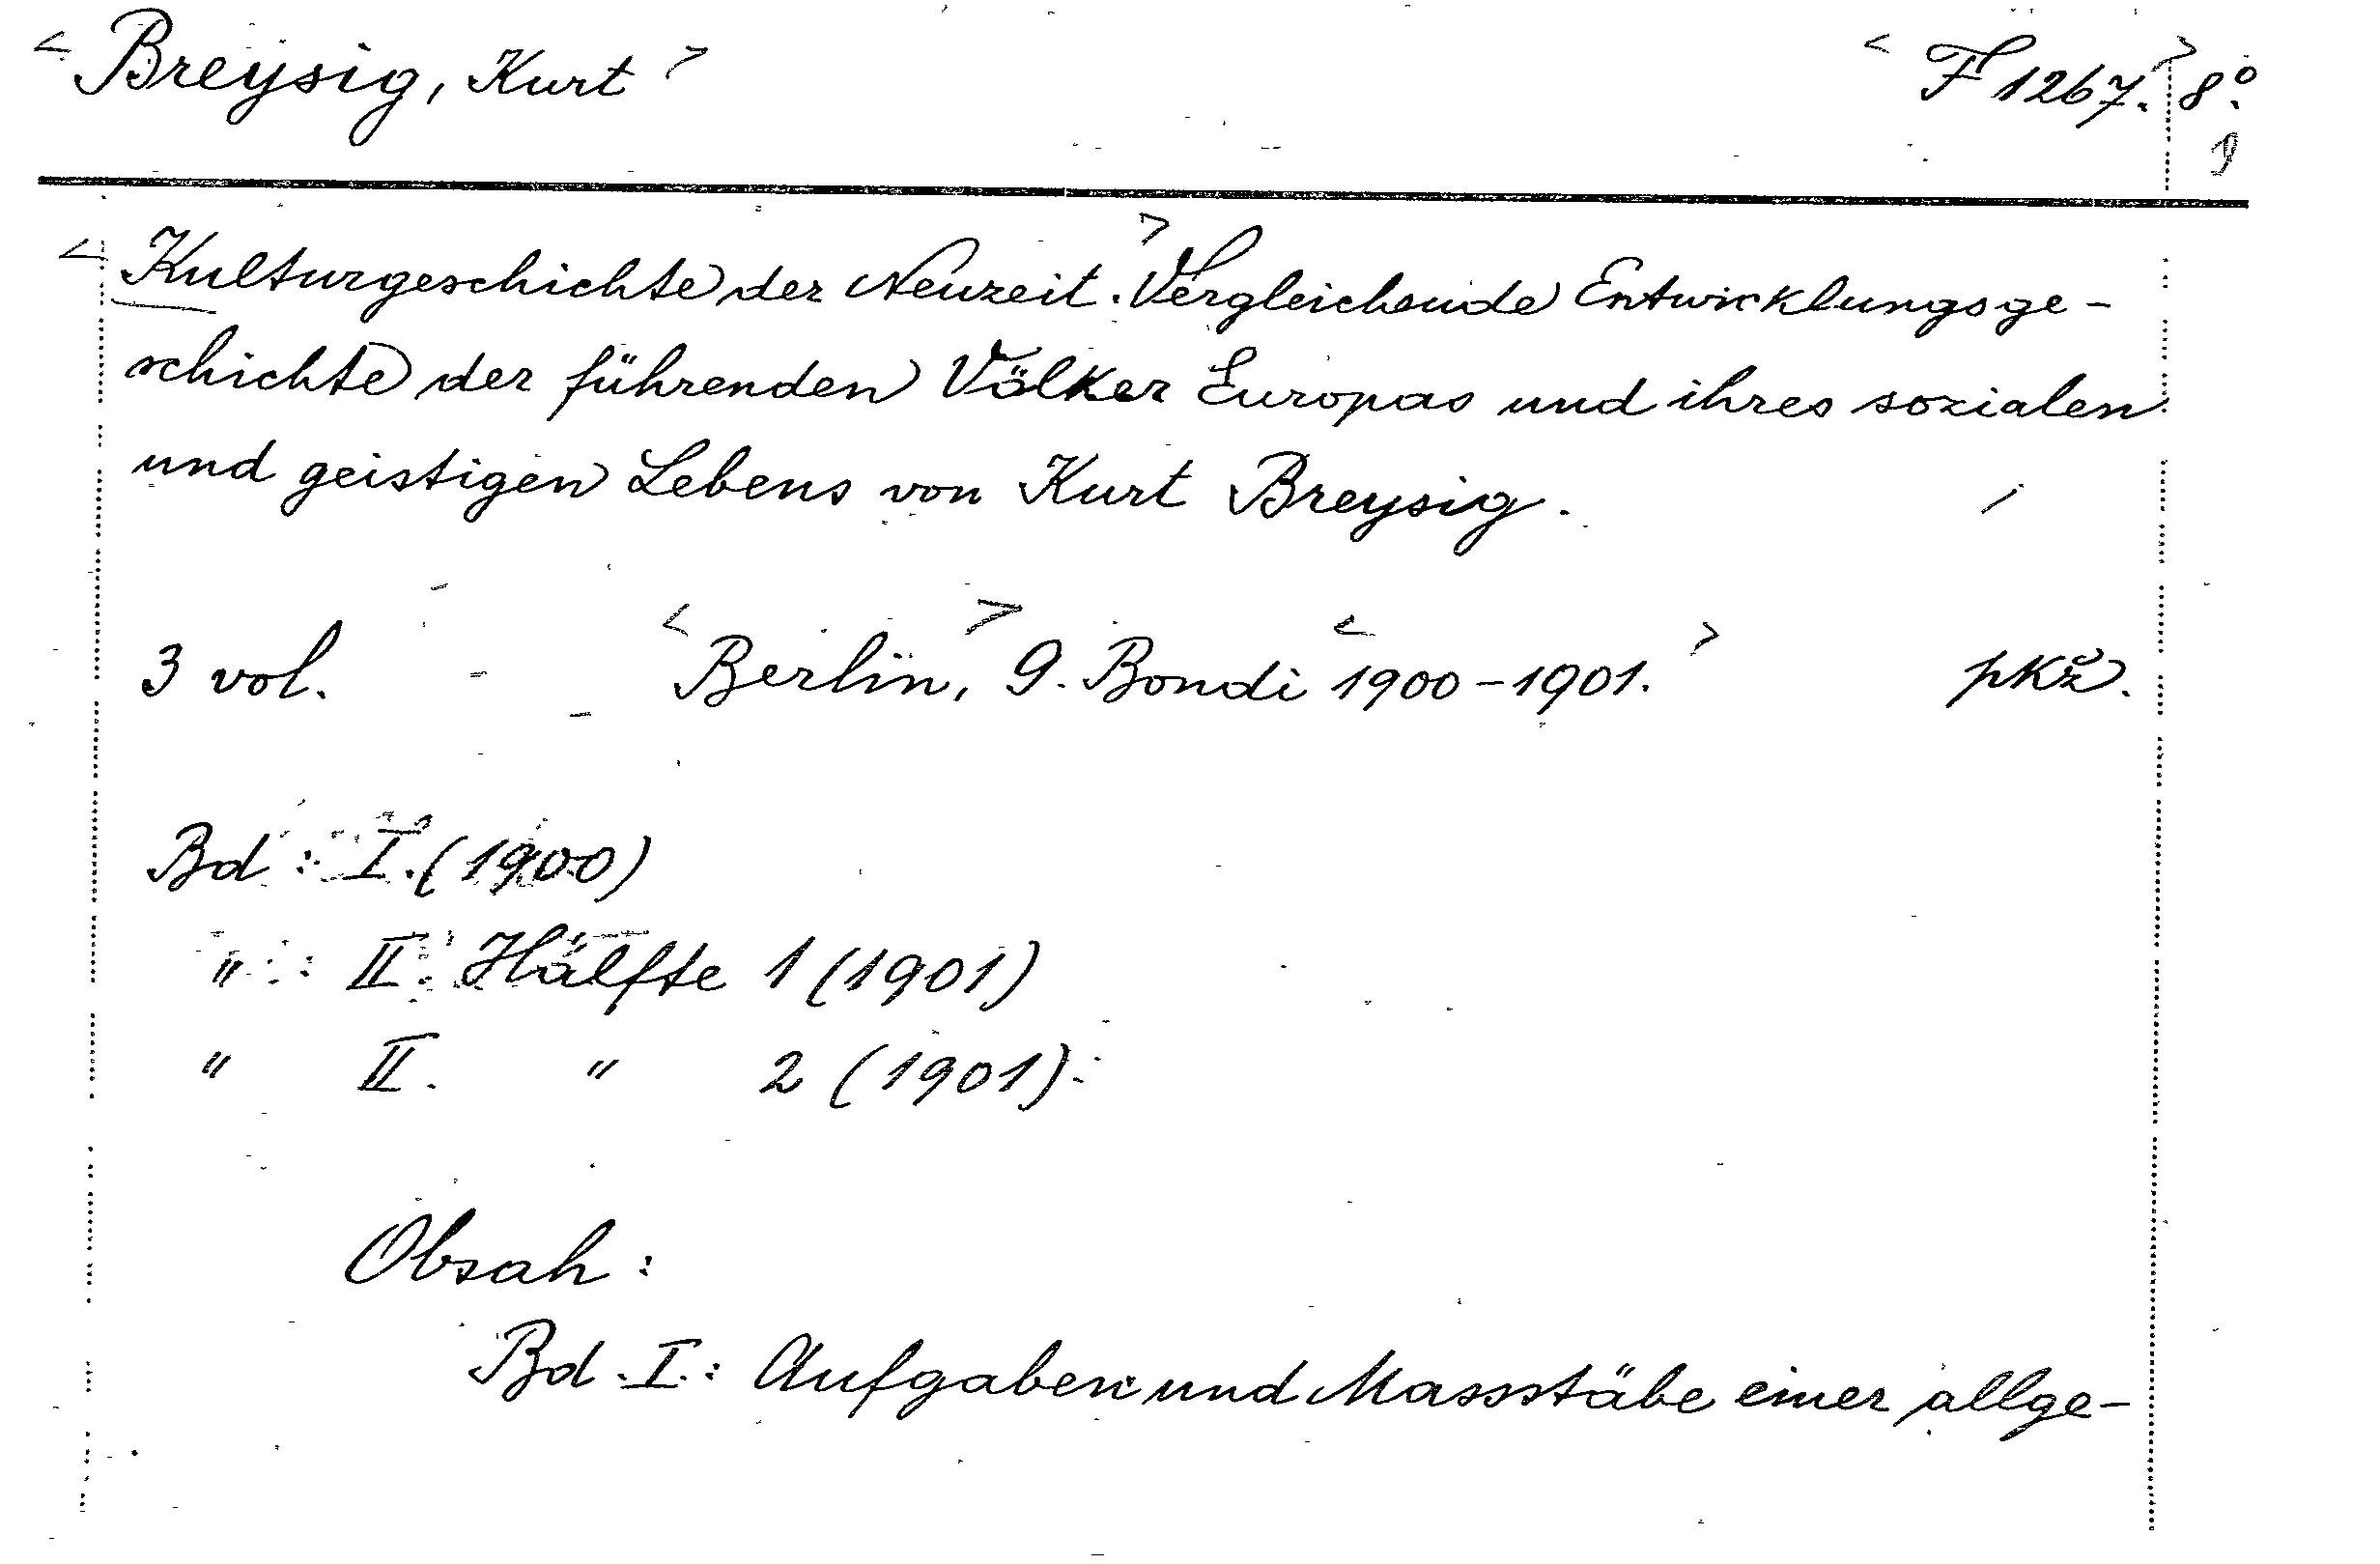 < Breysig, Kurt >
< F 1267. > 8º.
< Kulturgeschichte der Neuzeit. > Vergleichende Entwicklungsge-
schichte der führenden Völker Europas und ihres sozialen
und geistigen Lebens von Kurt Breysig.
3 vol. < Berlin, > G. Bondi < 1900-1901. > pkž.
Bd : I. (1900)
" : II. Hälfte 1 (1901)
" II. " 2 (1901)
Obsah :
Bd. I. : Aufgaben und Massstäbe einer allge-